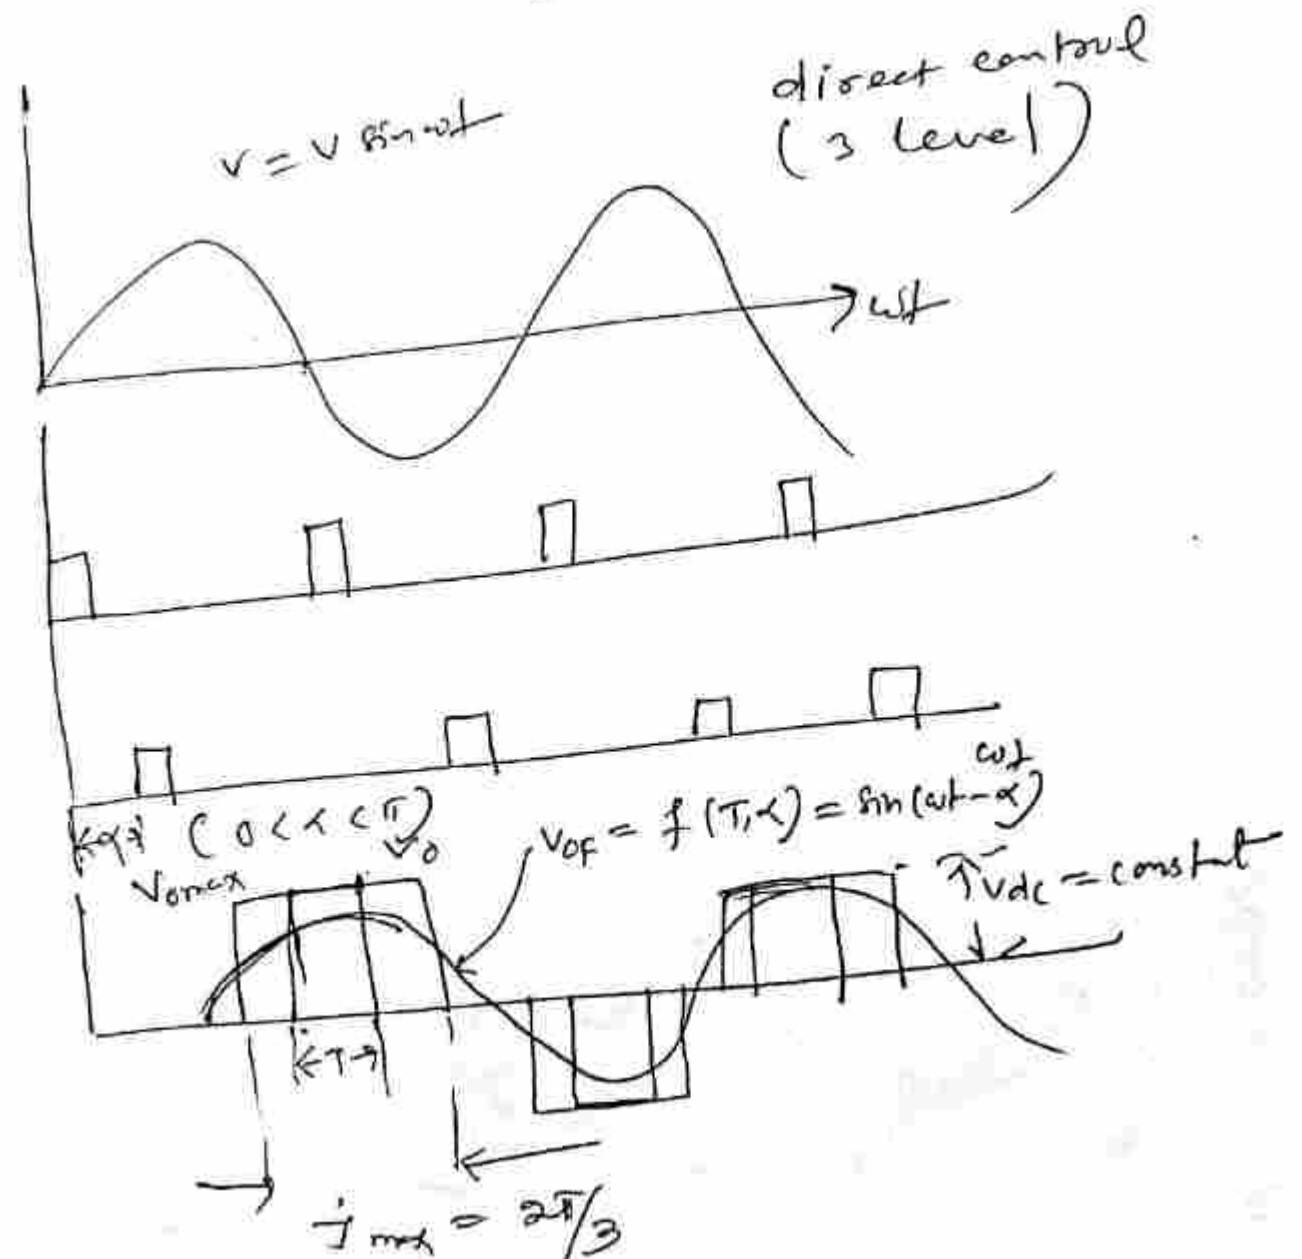 direct control
(3 level)
v = v sin ωt
ωt
ωt
←α→ (0 < α < π)
Vo
Vomax
VOF = f (T, α) = sin(ωt-α)
Vdc = constant
←T→
max = 2π/3